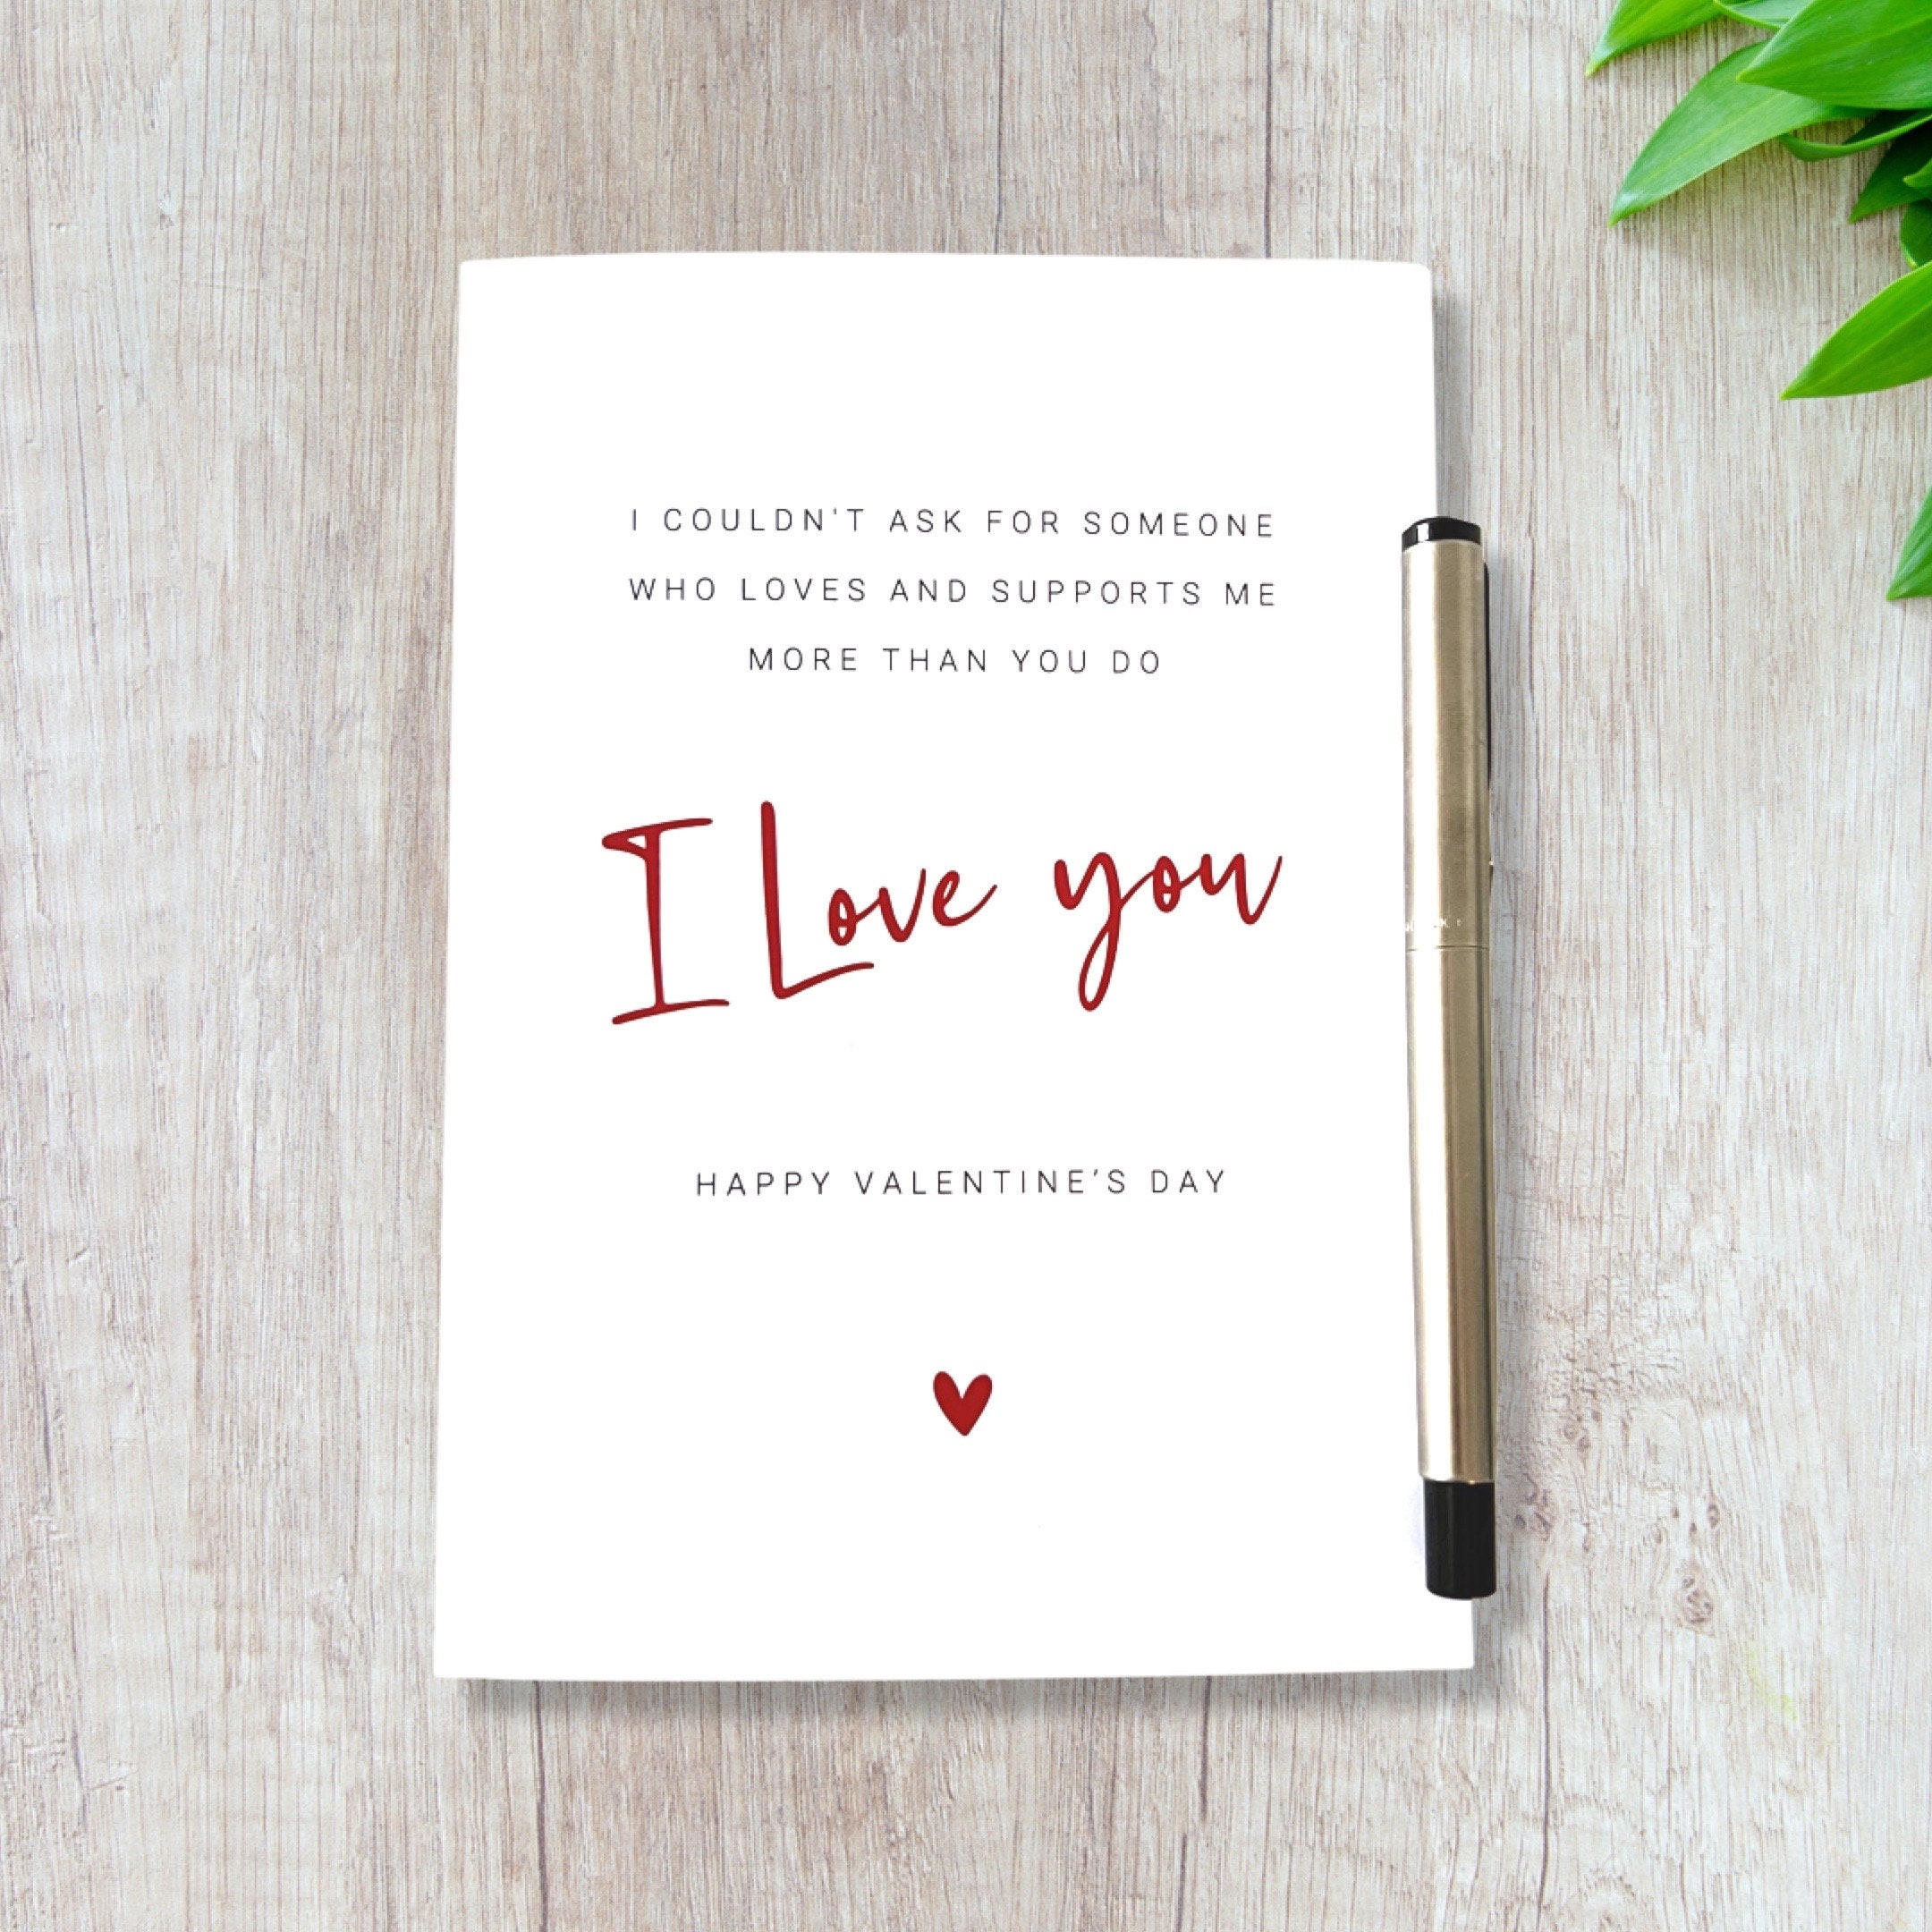 I COULDN'T ASK FOR SOMEONE
WHO LOVES AND SUPPORTS ME
MORE THAN YOU DO
I Love you
HAPPY VALENTINE’S DAY